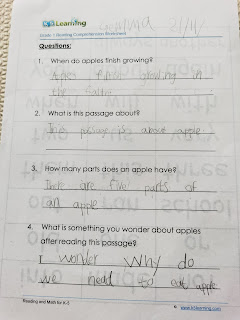 K5 Learning
Grade 1 Reading Comprehension Worksheet
Questions:
1. When do apples finish growing?
Apples finish growing in
the
2. What is this passage about?
This passage is about apple
3. How many parts does an apple have?
There are five parts of
an apple
4. What is something you wonder about apples
after reading this passage?
I wonder why do
we need to eat apple
Reading and Math for K-5
© www.k5learning.com